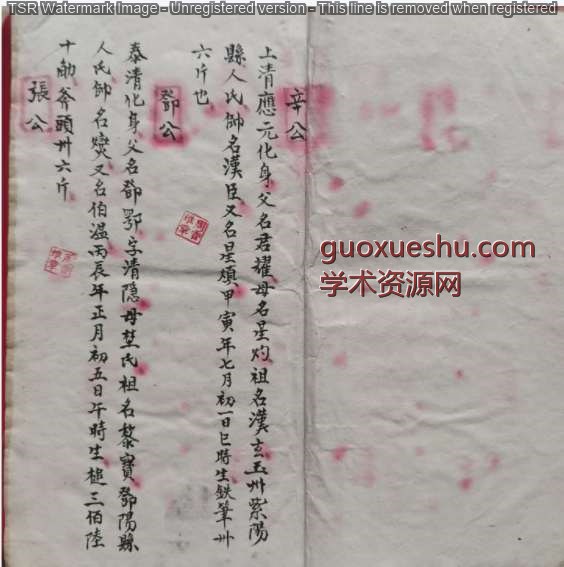 TSR Watermark Image - Unregistered version - This line is removed when registered
辛公
上清應元化身父名君耀母名星灼祖名漢玄玉州紫陽
縣人氏師名漢臣又名星煩甲寅年七月初一日巳時生鉄筆卅
六斤也
鄧公
泰清化身父名鄧鄂字清隱母埜氏祖名黎寶鄧陽縣
人氏師名燮又名伯温丙辰年正月初五日午時生槌三佰陸
十觔斧頭卅六斤
張公
guoxueshu.com
学术资源网